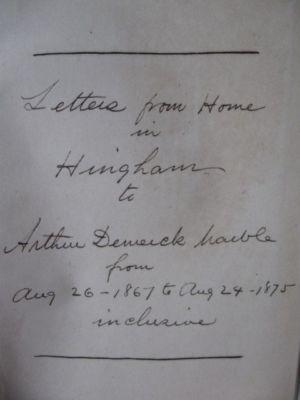 Letters from Home
in
Hingham
to
Arthur Dimerick Marble
from
Aug 26 - 1867 to Aug 24 - 1875
inclusive